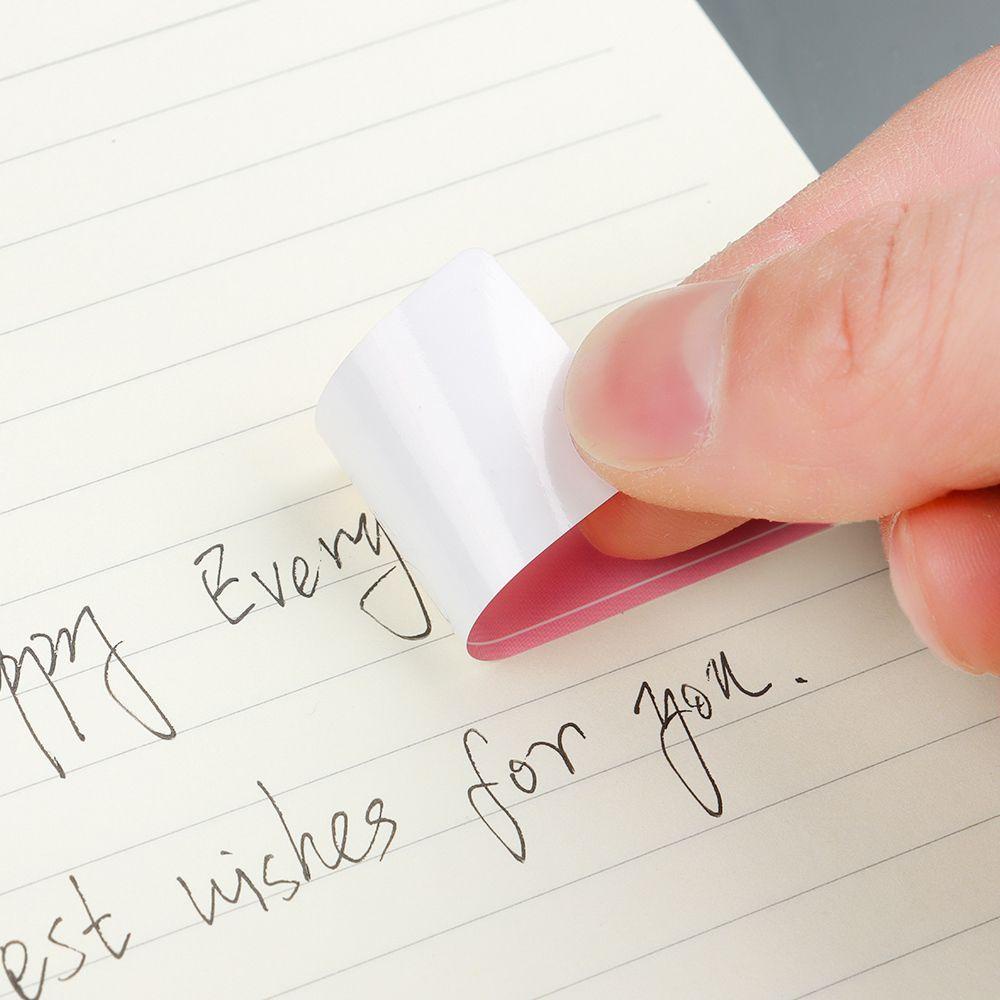 ppy Every
est wishes for you.